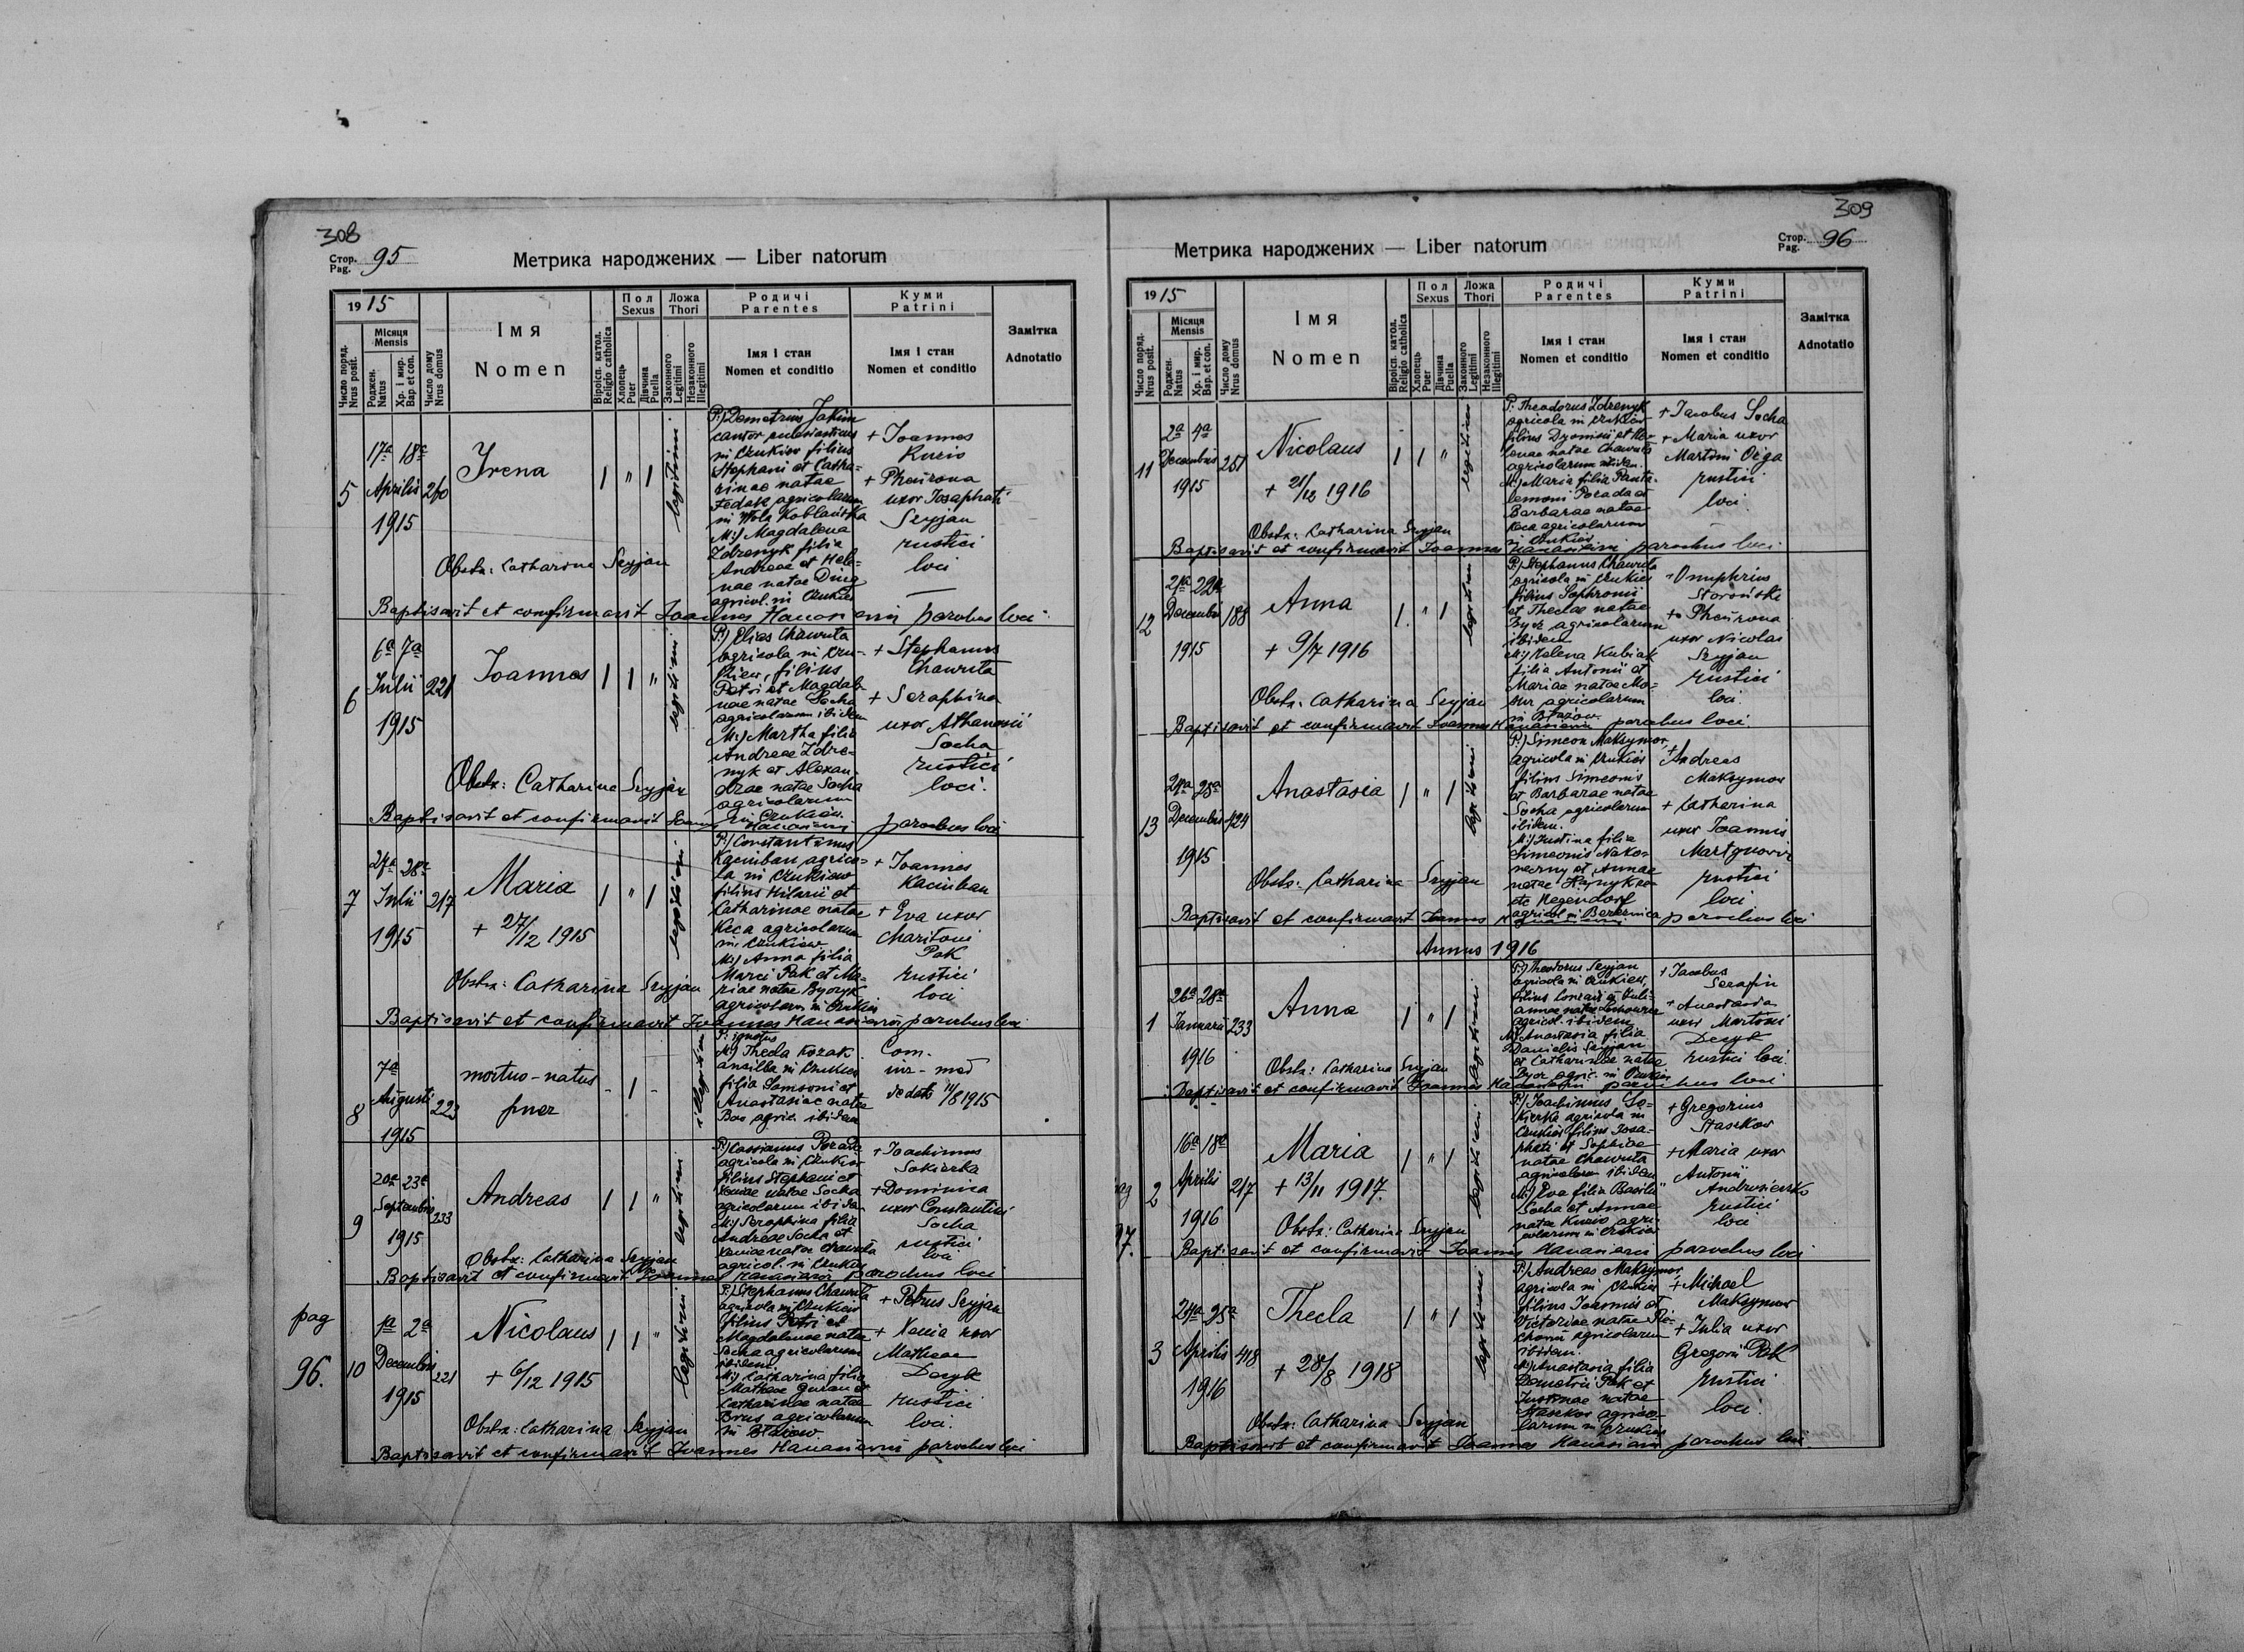 308
Стор. Pag. 95
Метрика народжених — Liber natorum
1915
Число поряд. Nrus posit.
Місяця Mensis
Роджен. Natus
Хр. і мир. Bap. et con.
Число дому Nrus domus
Імя
Nomen
Віроісп. катол. Religio catholica
Пол Sexus
Хлопець Puer
Дівчина Puella
Ложа Thori
Законного Legitimi
Незаконного Illegitimi
Родичі Parentes
Імя і стан
Nomen et conditio
Куми Patrini
Імя і стан
Nomen et conditio
Замітка
Adnotatio
5
17a 18a
Aprilis 260
1915
Irena
1 " 1
legitimi
P:) Demetrius Jakim
cantor
filius
Stephani et Catha-
rinae natae
Fedak agricolarum
in Wola
M:) Magdalena
Zdrenyk filia
Andreae et Hele-
nae natae
agricol. in
+ Joannes
Kuzio
+
uxor Josaphati
Szyjan
rustici
loci
Obstx: Catharina Szyjan
Baptisavit et confirmavit Joannes parochus loci
6
6a 7a
Julii 221
1915
Joannes
1 1 "
legitimi
P:) Elias Chawuta
agricola in
filius
Petri et Magdale-
nae natae Socha
agricolarum ibidem
M:) Martha filia
Andreae Zdre-
nyk et Alexan-
drae natae Socha
agricolarum
+ Stephanus
Chawuta
+ Seraphina
uxor Athanasii
Socha
rustici
loci.
Obstx: Catharina Szyjan
Baptisavit et confirmavit Joannes parochus loci
7
27a 28a
Julii 217
1915
Maria
+ 27/12 1915
1 " 1
legitimi
P:) Constantinus
Kaciuban agrico-
la in
filius Hilarii et
Catharinae natae
Keca agricolarum
M:) Anna filia
Marci Pak et Ma-
riae natae
agricolarum in
+ Joannes
Kaciuban
+ Eva uxor
Charitoni
Pak
rustici
loci
Obstx: Catharina Szyjan
Baptisavit et confirmavit Joannes parochus loci
8
7a
Augusti 223
1915
mortuo-natus
puer
- 1 -
P: ignotus
M:) Thecla Kozak
ancilla in
filia Samsoni et
Anastasiae natae
agric. ibidem
Com.
de dato 11/8 1915
9
20a 23a
Septembris 233
1915
Andreas
1 1 "
legitimi
P:) Cassianus Porada
agricola in
filius Stephani et
Xeniae natae Socha
agricolarum ibidem
M:) Seraphina filia
Andreae Socha et
Xeniae natae Chawuta
agricol. in
+ Joachimus
Sokierka
+ Dominica
uxor Constantini
Socha
rustici
loci
Obstx: Catharina Szyjan
Baptisavit et confirmavit Joannes parochus loci
pag
96.
10
1a 2a
Decembris 221
1915
Nicolaus
+ 6/12 1915
1 1 "
legitimi
P:) Stephanus Chawuta
agricola in
filius Petri et
Magdalenae natae
Socha agricolarum
ibidem.
M:) Catharina filia
Mathaei et
Catharinae natae
Brus agricolarum
+ Petrus Szyjan
+ Xenia uxor
Mathaei
Deryk
rustici
loci.
Obstx: Catharina Szyjan
Baptisavit et confirmavit Joannes parochus loci
309
Стор. Pag. 96
Метрика народжених — Liber natorum
1915
Число поряд. Nrus posit.
Місяця Mensis
Роджен. Natus
Хр. і мир. Bap. et con.
Число дому Nrus domus
Імя
Nomen
Віроісп. катол. Religio catholica
Пол Sexus
Хлопець Puer
Дівчина Puella
Ложа Thori
Законного Legitimi
Незаконного Illegitimi
Родичі Parentes
Імя і стан
Nomen et conditio
Куми Patrini
Імя і стан
Nomen et conditio
Замітка
Adnotatio
11
2a 4a
Decembris 251
1915
Nicolaus
+ 21/12 1916
1 1 "
legitimi
P: Theodorus Zdrenyk
agricola in
filius Dyonisii et He-
lenae natae Chawuta
agricolarum ibidem.
M:) Maria filia Panta-
lemoni Porada et
Barbarae natae
Keca agricolarum
+ Jacobus Socha
+ Maria uxor
Martini
rustici
loci.
Obstx: Catharina Szyjan
Baptisavit et confirmavit Joannes parochus loci
12
21a 22a
Decembris 188
1915
Anna
+ 9/7 1916
1 " 1
legitimi
P:) Stephanus Chawuta
agricola in
filius Sophronii
et Theclae natae
agricolarum
ibidem
M:) Helena Kubiak
filia Antonii et
Mariae natae Ma-
zur agricolarum
+ Onuphrius
Storoński
+
uxor Nicolai
Szyjan
rustici
loci.
Obstx: Catharina Szyjan
Baptisavit et confirmavit Joannes parochus loci
13
27a 28a
Decembris 424
1915
Anastasia
1 " 1
legitimi
P:) Simeon Maksymov
agricola in
filius Simeonis
et Barbarae natae
Socha agricolarum
ibidem.
M:) Justina filia
Simeonis
et Annae
natae
agricol. in Bereznica
+ Andreas
Maksymov
+ Catharina
uxor Joannis
rustici
loci
Obstx: Catharina Szyjan
Baptisavit et confirmavit Joannes parochus loci
Annus 1916
1
26a 28a
Januarii 233
1916
Anna
1 " 1
legitimi
P:) Theodorus Szyjan
agricola in
agricol. ibidem
M:) Anastasia filia
Danielis Szyjan
et Catharinae natae
+ Jacobus
Serafin
+ Anastasia
uxor Martini
Deryk
rustici loci
Obstx: Catharina Szyjan
Baptisavit et confirmavit Joannes parochus loci
2
16a 18a
Aprilis 217
1916
Maria
+ 13/11 1917.
1 " 1
legitimi
P:) Joachimus So-
kierka agricola in
filius Josa-
phati et Sophiae
natae Chawuta
agricolarum ibidem
M:) Eva filia Basilii
Socha et Annae
natae Kuzio agri-
colarum in
+ Gregorius
Staszkov
+ Maria uxor
Antonii
rustici
loci
97.
Obstx: Catharina Szyjan
Baptisavit et confirmavit Joannes parochus loci
3
24a 25a
Aprilis 418
1916
Thecla
+ 28/8 1918
1 " 1
legitimi
P:) Andreas Maksymov
agricola in
filius Joannis et
Victoriae natae
agricolarum
ibidem.
M:) Anastasia filia
Demetrii Pak et
Justinae natae
Staszkov agrico-
larum in
+ Michael
Maksymov
+ Julia uxor
Gregorii Pak
rustici
loci
Obstx: Catharina Szyjan
Baptisavit et confirmavit Joannes parochus loci